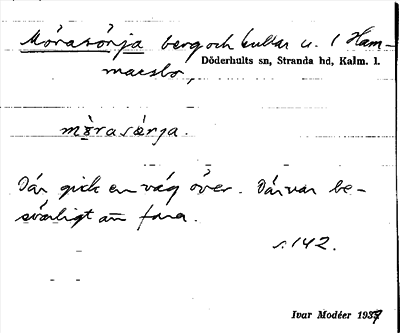 Mórasónja berg och kullar u. 1 Ham-
Döderhults sn, Stranda hd, Kalm. l.
marsbo,
mòrasørja.
Där gick en väg över. Där var be-
svärligt att fara.
s. 142.
Ivar Modéer 1937